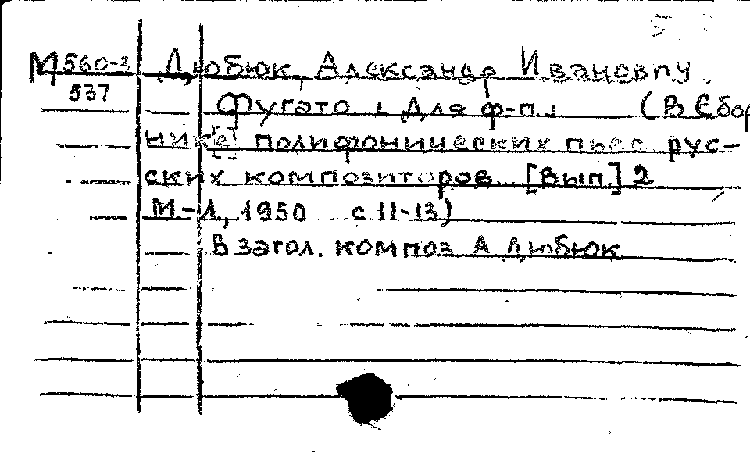 М 560-2 Дюбюк, Александр Ивановпу
537 Фугато. Для ф-п. (В Сбор
нике полифонических пьес рус-
ских композиторов. [Вып.] 2
М-Л, 1950 с 11-13)
В загол. композ А Дюбюк